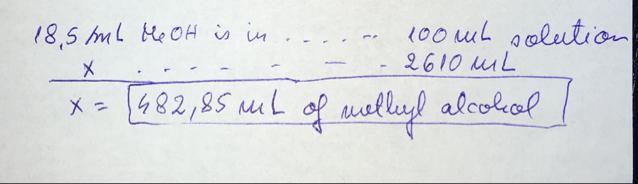 18,5 mL MeOH is in . . . . -- 100 mL solution
x . - - - - - - - 2610 mL
x = 482,85 mL of methyl alcohol